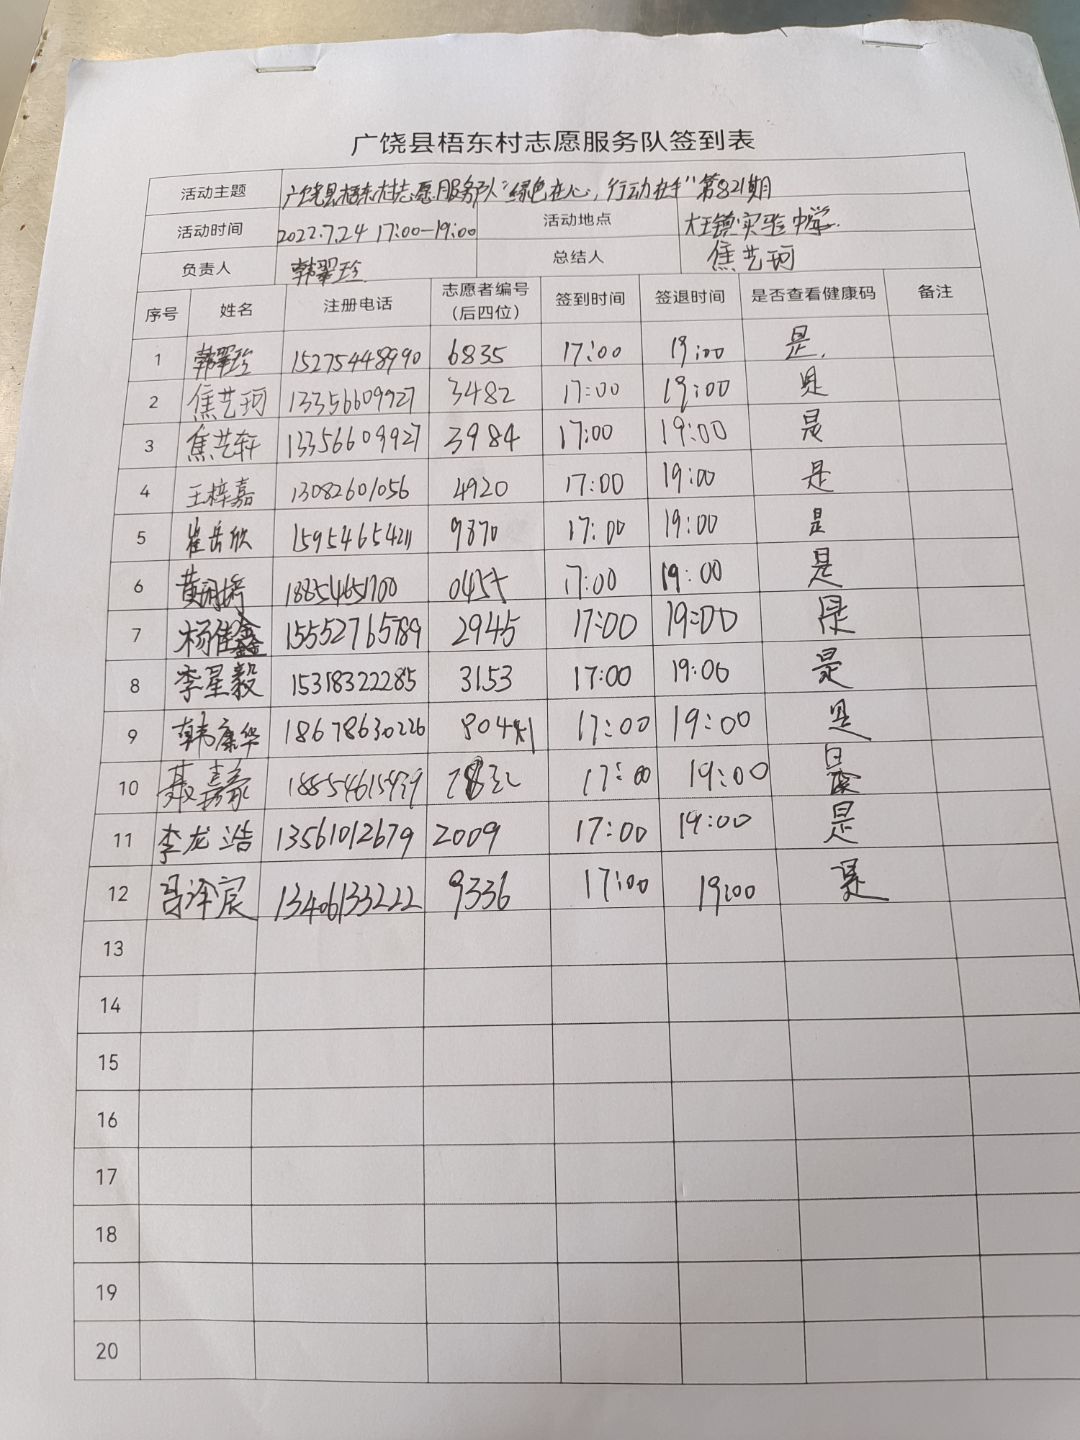 广饶县梧东村志愿服务队签到表
活动主题 广饶县梧东村志愿服务队“绿色在心，行动在手”第821期
活动时间 2022.7.24 17:00-19:00 活动地点 大王镇实验中学
负责人 韩翠珍 总结人 焦艺珂
序号 姓名 注册电话 志愿者编号（后四位） 签到时间 签退时间 是否查看健康码 备注
1 韩翠珍 15275448990 6835 17:00 19:00 是
2 焦艺珂 13356609927 3482 17:00 19:00 是
3 焦艺轩 13356609927 3984 17:00 19:00 是
4 王梓嘉 13082601056 4920 17:00 19:00 是
5 崔岳欣 15954654211 9870 17:00 19:00 是
6 黄 18854651700 17:00 19:00 是
7 杨佳鑫 15552765789 2945 17:00 19:00 是
8 李星毅 15318322285 3153 17:00 19:00 是
9 韩康华 18678630226 804 17:00 19:00 是
10 聂嘉豪 17:00 19:00
11 李龙浩 13561012679 2009 17:00 19:00 是
12 吕泽宸 13406133222 9336 17:00 19:00 是
13
14
15
16
17
18
19
20